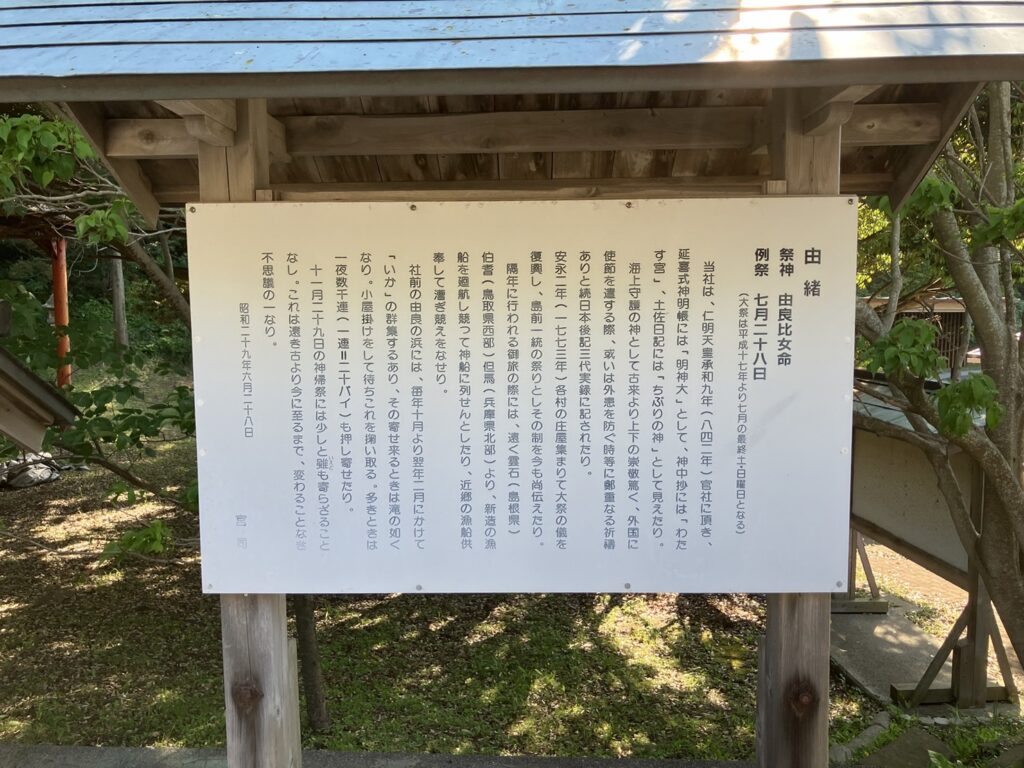 由緒
祭神 由良比女命
例祭 七月二十八日
(大祭は平成十七年より七月の最終土日曜日となる)
当社は、仁明天皇承和九年(八四二年)官社に頂き、
延喜式神明帳には「明神大」として、神中抄には「わた
す宮」、土佐日記には「ちぶりの神」として見えたり。
海上守護の神として古来より上下の崇敬篤く、外国に
使節を遣する際、或いは外患を防ぐ時等に鄭重なる祈禱
ありと続日本後記三代実録に記されたり。
安永二年(一七七三年)各村の庄屋集まりて大祭の儀を
復興し、島前一統の祭りとしその制を今も尚伝えたり。
隔年に行われる御旅の際には、遠く雲石(島根県)
伯耆(鳥取県西部)但馬(兵庫県北部)より、新造の漁
船を廻航し競って神船に列せんとしたり、近郷の漁船供
奉して漕ぎ競えをなせり。
社前の由良の浜には、毎年十月より翌年二月にかけて
「いか」の群集するあり、その寄せ来るときは滝の如く
なり。小屋掛けをして待ちこれを掬い取る。多きときは
一夜数千連(一連=二十パイ)も押し寄せたり。
十一月二十九日の神帰祭には少しと雖も寄らざること
なし。これは遠き古より今に至るまで、変わることなき
不思議の一なり。
昭和二十九年六月二十八日
宮司